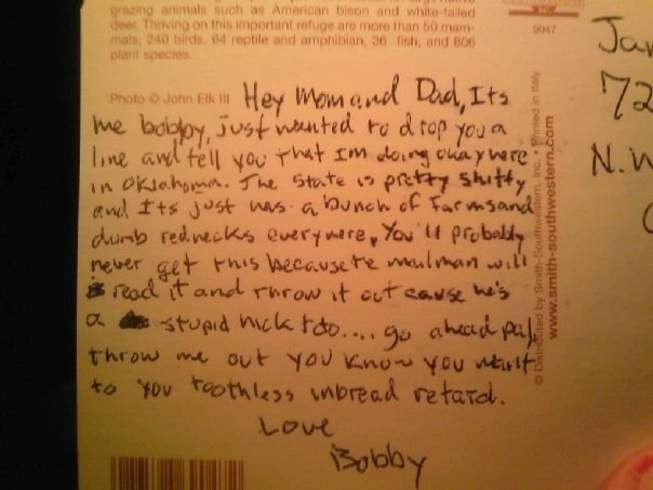 grazing animals such as American bison and white-tailed
deer. Thriving on this important refuge are more than 50 mam-
mals, 240 birds, 64 reptile and amphibian, 36 fish, and 806
plant species.
9047
Photo © John Elk III
Hey Mom and Dad, Its
me bobby, just wanted to drop you a
line and tell you that Im doing okay here
in Oklahoma. The State is pretty shitty
and Its just has a bunch of farms and
dumb rednecks everywere, You'll probably
never get this because the mailman will
read it and throw it out cause he's
a stupid hick too.... go ahead pal,
throw me out you know you want
to you toothless inbread retard.
Love
Bobby
© Distributed by Smith-Southwestern, Inc. • Printed in Italy
www.smith-southwestern.com
72
N.W